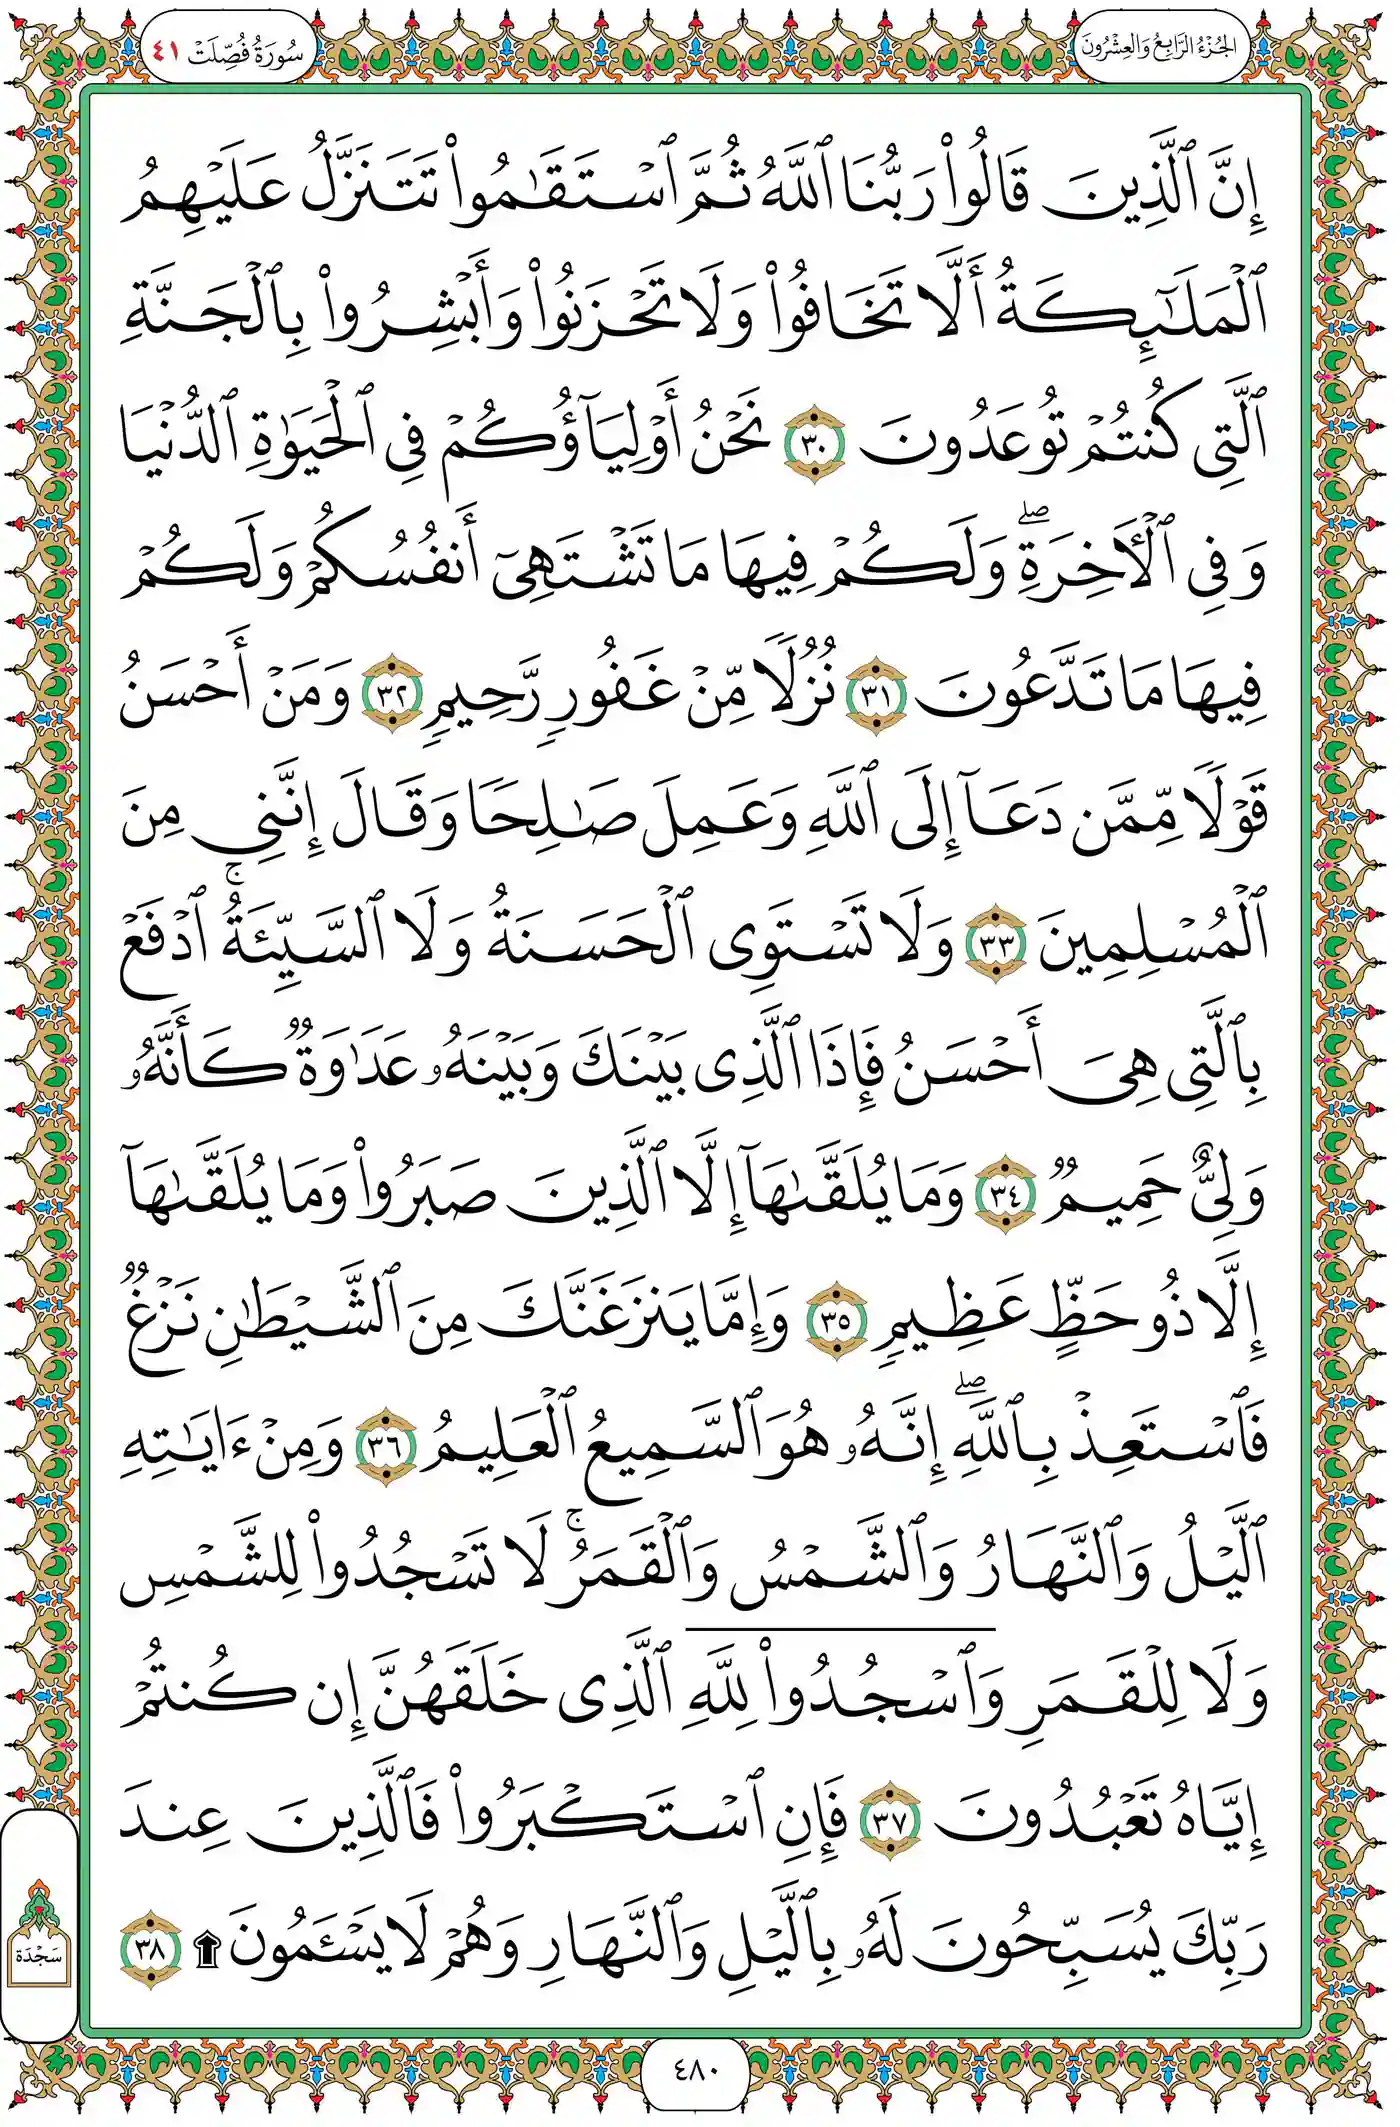 الجزء الرابع والعشرون
سورة فصلت ٤١
إِنَّ ٱلَّذِينَ قَالُوا۟ رَبُّنَا ٱللَّهُ ثُمَّ ٱسْتَقَـٰمُوا۟ تَتَنَزَّلُ عَلَيْهِمُ
ٱلْمَلَـٰٓئِكَةُ أَلَّا تَخَافُوا۟ وَلَا تَحْزَنُوا۟ وَأَبْشِرُوا۟ بِٱلْجَنَّةِ
ٱلَّتِى كُنتُمْ تُوعَدُونَ ٣٠ نَحْنُ أَوْلِيَآؤُكُمْ فِى ٱلْحَيَوٰةِ ٱلدُّنْيَا
وَفِى ٱلْـَٔاخِرَةِ ۖ وَلَكُمْ فِيهَا مَا تَشْتَهِىٓ أَنفُسُكُمْ وَلَكُمْ
فِيهَا مَا تَدَّعُونَ ٣١ نُزُلًا مِّنْ غَفُورٍ رَّحِيمٍ ٣٢ وَمَنْ أَحْسَنُ
قَوْلًا مِّمَّن دَعَآ إِلَى ٱللَّهِ وَعَمِلَ صَـٰلِحًا وَقَالَ إِنَّنِى مِنَ
ٱلْمُسْلِمِينَ ٣٣ وَلَا تَسْتَوِى ٱلْحَسَنَةُ وَلَا ٱلسَّيِّئَةُ ۚ ٱدْفَعْ
بِٱلَّتِى هِىَ أَحْسَنُ فَإِذَا ٱلَّذِى بَيْنَكَ وَبَيْنَهُۥ عَدَٰوَةٌ كَأَنَّهُۥ
وَلِىٌّ حَمِيمٌ ٣٤ وَمَا يُلَقَّىٰهَآ إِلَّا ٱلَّذِينَ صَبَرُوا۟ وَمَا يُلَقَّىٰهَآ
إِلَّا ذُو حَظٍّ عَظِيمٍ ٣٥ وَإِمَّا يَنزَغَنَّكَ مِنَ ٱلشَّيْطَـٰنِ نَزْغٌ
فَٱسْتَعِذْ بِٱللَّهِ ۖ إِنَّهُۥ هُوَ ٱلسَّمِيعُ ٱلْعَلِيمُ ٣٦ وَمِنْ ءَايَـٰتِهِ
ٱلَّيْلُ وَٱلنَّهَارُ وَٱلشَّمْسُ وَٱلْقَمَرُ ۚ لَا تَسْجُدُوا۟ لِلشَّمْسِ
وَلَا لِلْقَمَرِ وَٱسْجُدُوا۟ لِلَّهِ ٱلَّذِى خَلَقَهُنَّ إِن كُنتُمْ
إِيَّاهُ تَعْبُدُونَ ٣٧ فَإِنِ ٱسْتَكْبَرُوا۟ فَٱلَّذِينَ عِندَ
رَبِّكَ يُسَبِّحُونَ لَهُۥ بِٱلَّيْلِ وَٱلنَّهَارِ وَهُمْ لَا يَسْـَٔمُونَ ۩ ٣٨
سجدة
٤٨٠